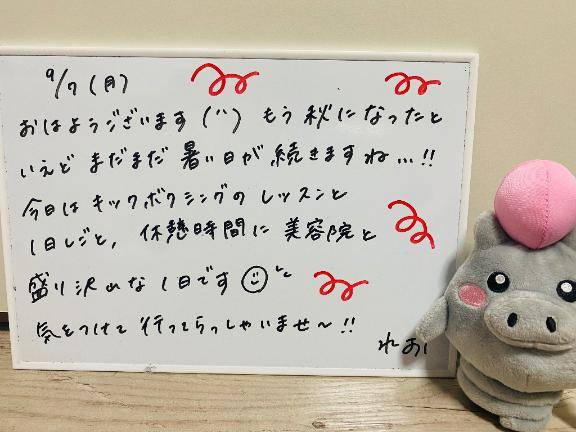 9/7 (月)
おはようございます(^^) もう秋になったと
いえど まだまだ 暑い日が 続きますね…!!
今日は キックボクシングの レッスンと
1日しごと, 休憩時間に 美容院と
盛り沢山な 1日です
気をつけて 行ってらっしゃいませ〜!!
れあ